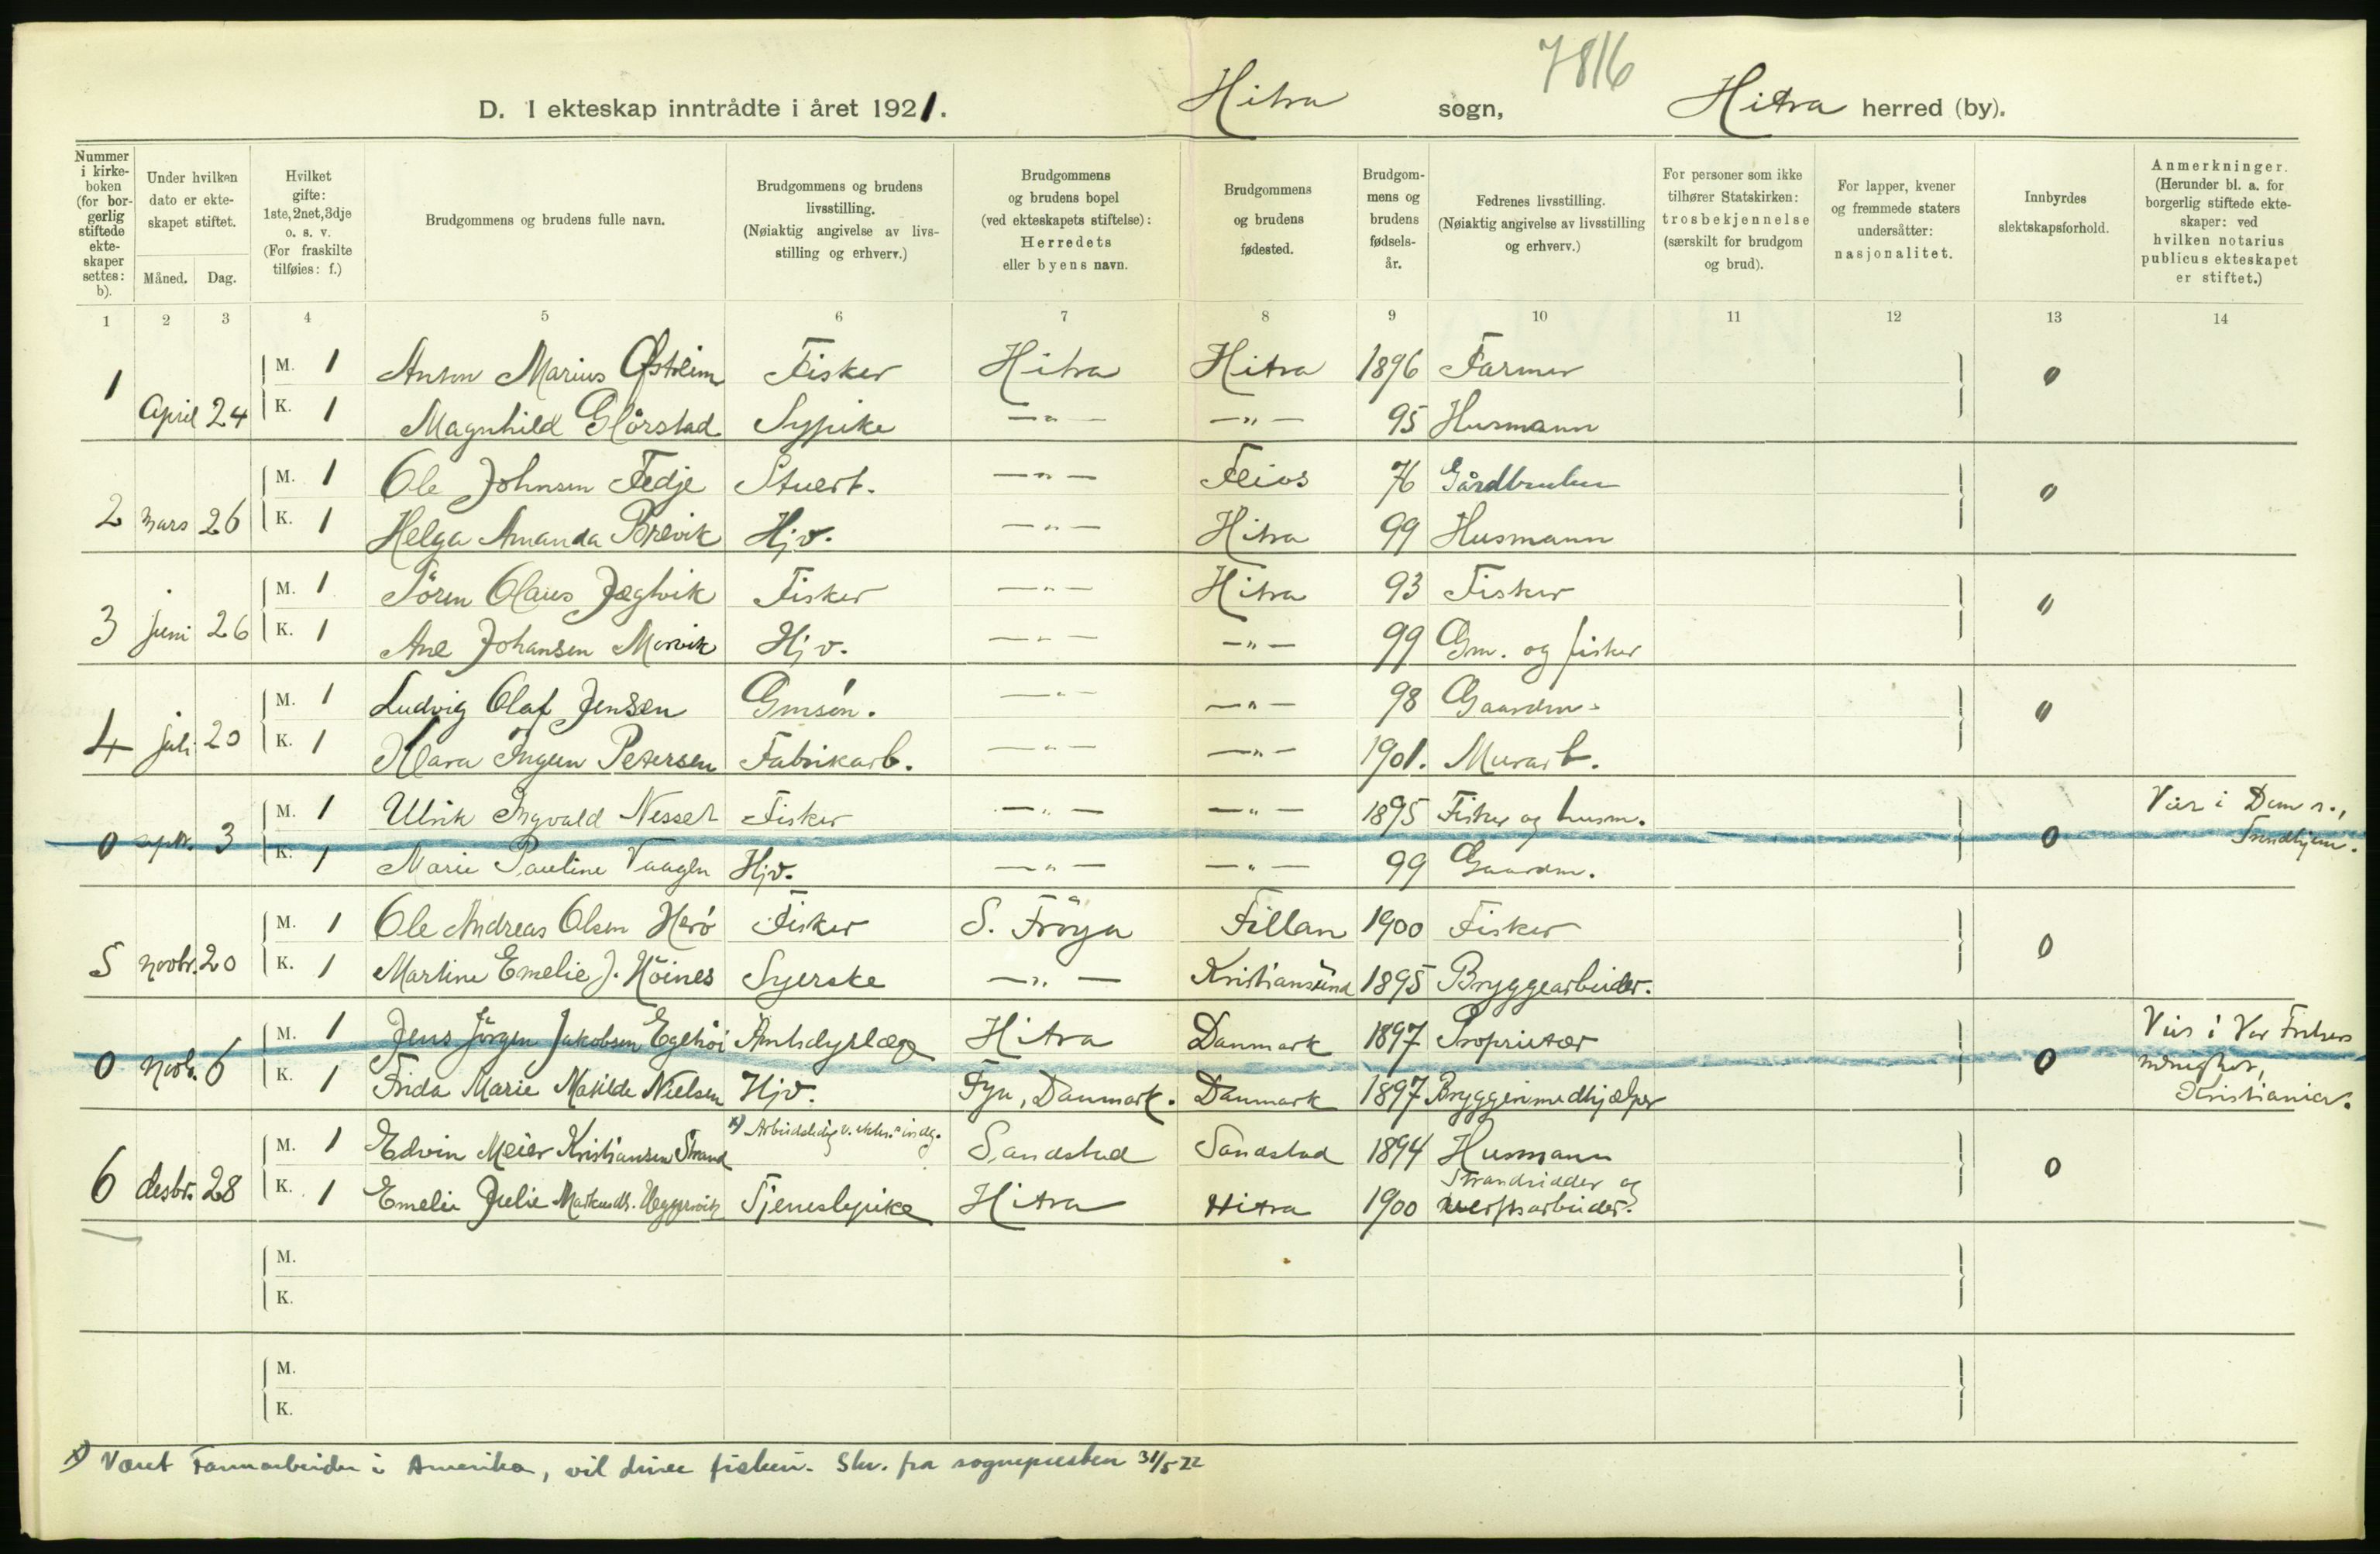 7816
D. I ekteskap inntrådte i året 1921. Hitra sogn, Hitra herred (by).
Nummer i kirke-boken (for bor-gerlig stiftede ekte-skaper settes: b).
Under hvilken dato er ekte-skapet stiftet.
Måned. Dag.
Hvilket gifte: 1ste, 2net, 3dje o. s. v. (For fraskilte tilføies: f.)
Brudgommens og brudens fulle navn.
Brudgommens og brudens livsstilling. (Nøiaktig angivelse av livs-stilling og erhverv.)
Brudgommens og brudens bopel (ved ekteskapets stiftelse): Herredets eller byens navn.
Brudgommens og brudens fødested.
Brudgom-mens og brudens fødsels-år.
Fedrenes livsstilling. (Nøiaktig angivelse av livsstilling og erhverv.)
For personer som ikke tilhører Statskirken: trosbekjennelse (særskilt for brudgom og brud).
For lapper, kvener og fremmede staters undersåtter: nasjonalitet.
Innbyrdes slektskapsforhold.
Anmerkninger. (Herunder bl. a. for borgerlig stiftede ekte-skaper: ved hvilken notarius publicus ekteskapet er stiftet.)
1 2 3 4 5 6 7 8 9 10 11 12 13 14
M. 1 Anton Marius Østreim Fisker Hitra Hitra 1896 Farmer 0
1 April 24 K. 1 Magnhild Glörstad Sypike —"— —"— 95 Husmann
M. 1 Ole Johnsen Fedje Stuert. —"— Feios 76 Gårdbruker 0
2 mars 26 K. 1 Helga Amanda Brevik Hjv. —"— Hitra 99 Husmann
M. 1 Sören Olaus Jægtvik Fisker —"— Hitra 93 Fisker 0
3 juni 26 K. 1 Ane Johansen Morvik Hjv. —"— —"— 99 Gm. og fisker
M. 1 Ludvig Olaf Jensen Gmsön. —"— —"— 98 Gaardm. 0
4 juli 20 K. 1 Klara Ingeun Petersen Fabrikarb. —"— —"— 1901. Murarb.
M. 1 Ulrik Ingvald Nesset Fisker —"— —"— 1895 Fisker og husm. Viet i Dom s.,
0 septr. 3 K. 1 Marie Pauline Vaagen Hjv. —"— —"— 99 Gaardm. 0 Trondhjem.
M. 1 Ole Andreas Olsen Herö Fisker S. Fröya Fillan 1900 Fisker 0
5 novbr. 20 K. 1 Martine Emelie J. Höines Syerske —"— Kristiansund 1895 Bryggearbeider.
M. 1 Jens Jörgen Jakobsen Egehöi Amtsdyrlæge Hitra Danmark 1897 Proprietær Viet i Vor Frelsers
0 novb. 6 K. 1 Frida Marie Matilde Nielsen Hjv. Fyn, Danmark. Danmark 1897 Bryggerimedhjælper 0 menighet, Kristiania.
M. 1 Edvin Meier Kristiansen Strand x) Arbeidsledig Sandstad Sandstad 1894 Husmann 0
6 desbr. 28 K. 1 Emelie Julie Markusdt. Uggervik Tjenestepike Hitra Hitra 1900 Strandsidder og verftsarbeider.
M.
K.
M.
K.
x) Været Farmarbeider i Amerika, vil drive fiskeri. Skr. fra sognepresten 31/5 22